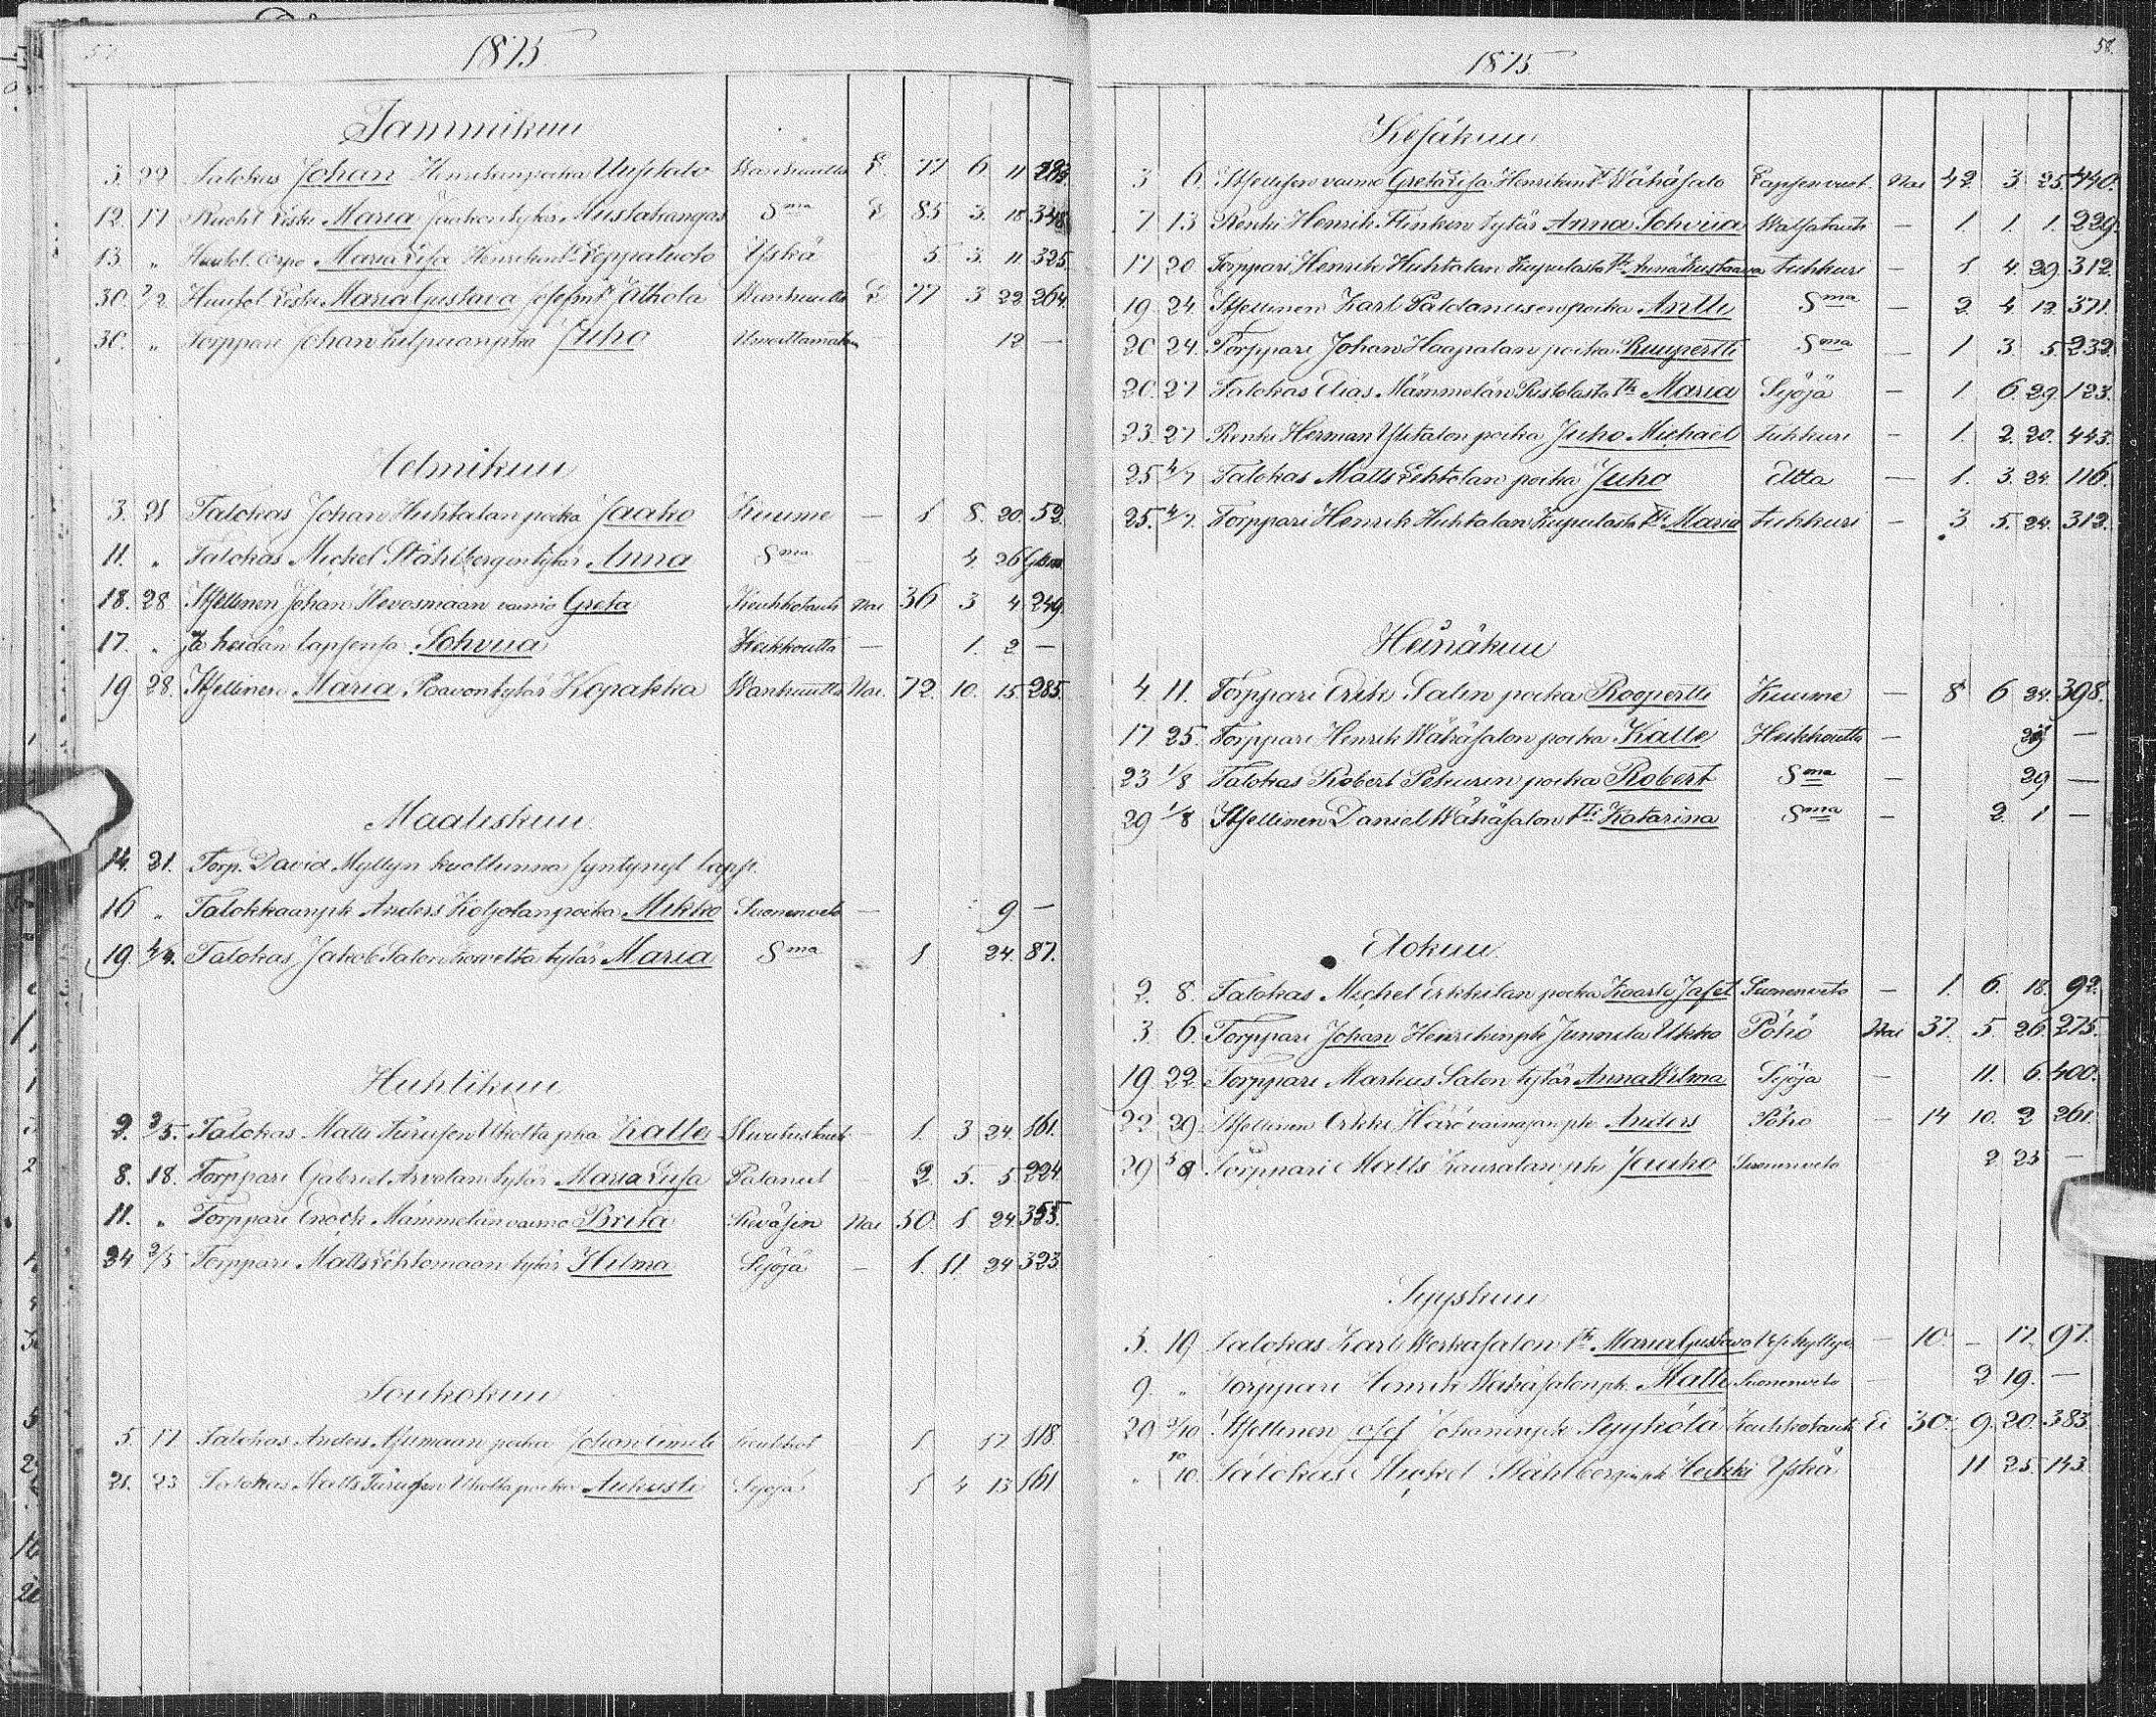 1875
Tammikuu
3. 22 Talokas Johan Henrikinpoika Uusitalo Wanhuutta L. 77 6 11
12. 17 Ruoht Leski Maria Jaakontytär Mustakangas Sma L 85 3. 18 348
13. " Maria Lisa Henrikint. Loppaluoto Yskä 5 3. 11 325.
30. 7/2 Leski Maria Gustava Josefint. Jålkola Wanhuutta L 77 3 22 264.
30. " Torppari Johan pka Juho 12 —
Helmikuu
3. 21 Talokas Johan Huhtalan poika Jaako Kuume — 1 8. 20. 52.
11. " Talokas Mickel Ståhlbergin tytär Anna Sma — 4 26
18. 28 Itsellinen Johan Hevosmaan vaimo Greta Keuhkotauti Nai 36 3 4 249.
17. " Ja heidän lapsensa Sohviia Heikkoutta — 1. 2 —
19 28. Itsellinen Maria Paavontytär Kopakka Wanhuutta Nai. 72. 10. 15. 285.
Maaliskuu.
14. 21. Torp. David Myllyn kuollunna syntynyt laps.
16 " Talokkaanpk Anders Koljolan poika Mikko Suonenveto — 9 —
19 4/4. Talokas Jakob Salon tytär Maria Sma 1. 24. 87.
Huhtikuu
2. 2/5. Talokas Matts pka Kalle — 1. 3 24. 161.
8. 18. Torppari Gabriel Arvolan tytär Maria Lisa Palanut — 2. 5. 5 224.
11. " Torppari Enoch Mämmelän vaimo Brita Nai 50. 1 24. 355.
24 2/5 Torppari Matts Lehtomaan tytär Hilma Syöjä — 1. 11. 24 323.
Toukokuu
5. 17. Talokas Anders poika Johan Eineli 1 17 118.
21. 23 Talokas Matts poika Aukusti Syöjä 1 4 13 161
58.
1875
Kesäkuu
3 6. Itsellisen vaimo Greta Lisa Henrikint. Wähäsalo Lapsenvuot. Nai 42. 3 25. 440.
7 13 Renki Henrik Flinken tytär Anna Sohviia — 1 1. 1. 229.
17 20. Torppari Henrik Huhtalan Kupulasta tr. Anna Kustaava Tuhkuri — 1 4. 29 312.
19. 24. Itsellinen Karl Paldanusen poika Antti Sma — 2 4. 12. 371.
20 24. Torppari Johan Haapalan poika Ruupertti Sma — 1 3. 5. 232.
20. 27 Talokas Elias Mämmelän Pustolasta tr. Maria Syöjä — 1 6. 29. 123.
23. 27 Renki Herman Ylitalon poika Juho Michael Tuhkuri — 1. 2. 20. 443.
25 4/7 Talokas Matts Lehtolan poika Juho — 1. 3. 24. 116.
25. 4/7. Torppari Henrik Huhtalan Kupulasta tr. Maria Tuhkuri — 3 5. 24. 312.
Heinäkuu
4. 11. Torppari Erik Salin poika Roopertti Kuume — 8 6 24. 398.
17. 25. Torppari Henrik Wähäsalon poika Kalle Heikkoutta — —
23 1/8 Talokas Robert Pekurin poika Robert Sma — 29 —
29 1/8 Itsellinen Daniel Wähäsalon tr. Katarina Sma — 2. 1 —
Elokuu
2. 8. Talokas Mickel Erkkilan poika Kaarle Jafet Suonenveto — 1. 6. 18. 92.
3. 6. Torppari Johan Henrikinpk Junnila Ukko Pöhö Nai 37. 5 26. 275.
19 22. Torppari Markus Salon tytär Anna Wilma Syöjä — 11. 6. 400.
22 29. Itsellinen Erkki Härö vainajan pk. Anders Pöho — 14 10. 2 261.
29 5/9 Torppari Matts Kauralan pk Jaako Suonenveto 2 25 —
Syyskuu
5. 19 Talokas Karl Werkasalon tr. Maria Gustava — 10 — 17. 97.
9. " Torppari Henrik Wähäsalon pk. Matti Suonenveto — 2 19. —
20 3/10 Itsellinen Josef Johaninpk Pyykölä Keuhkotauti Ei 30. 9. 20. 383
" 10/10. Talokas Mickel Ståhlbergin pk Heikki Yskä 11 25. 143.